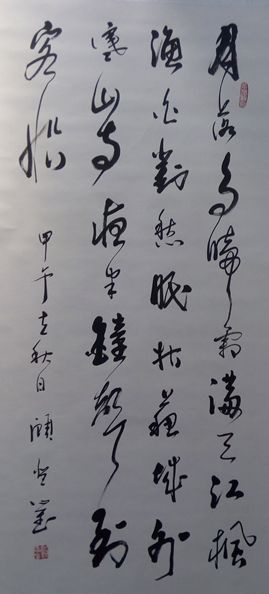 月落烏啼霜滿天江楓
漁火對愁眠姑蘇城外
寒山寺夜半鐘聲到
客船
甲午立秋日